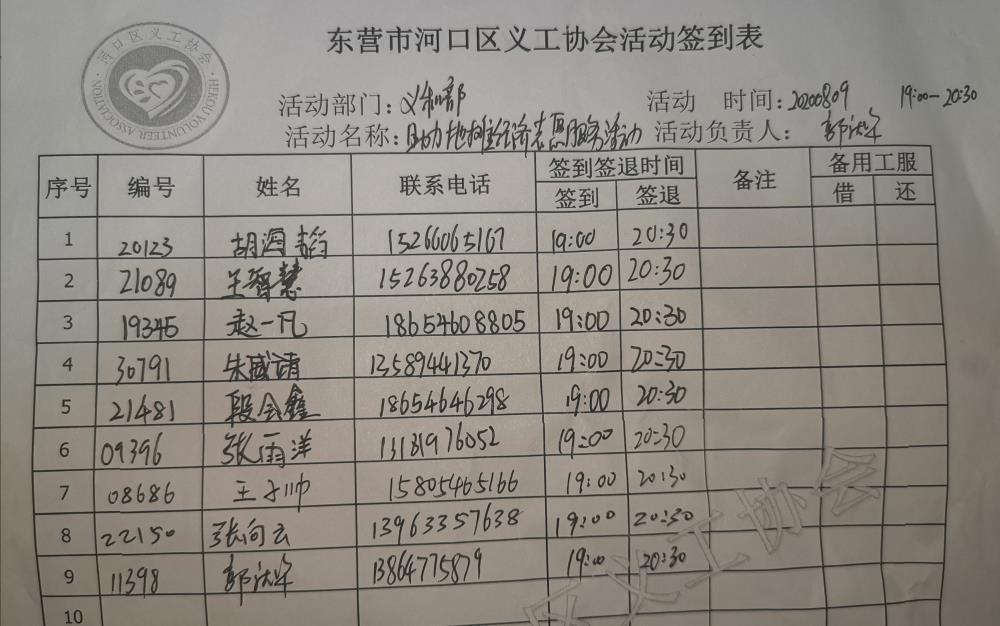 东营市河口区义工协会活动签到表
河口区义工协会
HEKOU VOLUNTEER ASSOCIATION
活动部门：义和部 活动 时间：20200809 19:00-20:30
活动名称：助力地摊经济志愿服务活动 活动负责人：
序号 编号 姓名 联系电话 签到签退时间 备注 备用工服
签到 签退 借 还
1 20123 胡海韬 15266065167 19:00 20:30
2 21089 王智慧 15263880258 19:00 20:30
3 19345 赵一凡 18654608805 19:00 20:30
4 30791 朱威靖 13589441370 19:00 20:30
5 21481 段会鑫 18654646298 19:00 20:30
6 09396 张雨洋 13181976052 19:00 20:30
7 08686 王子帅 15805465166 19:00 20:30
8 22150 张向云 13963357638 19:00 20:30
9 11398 13864775879 19:00 20:30
10
区义工协会